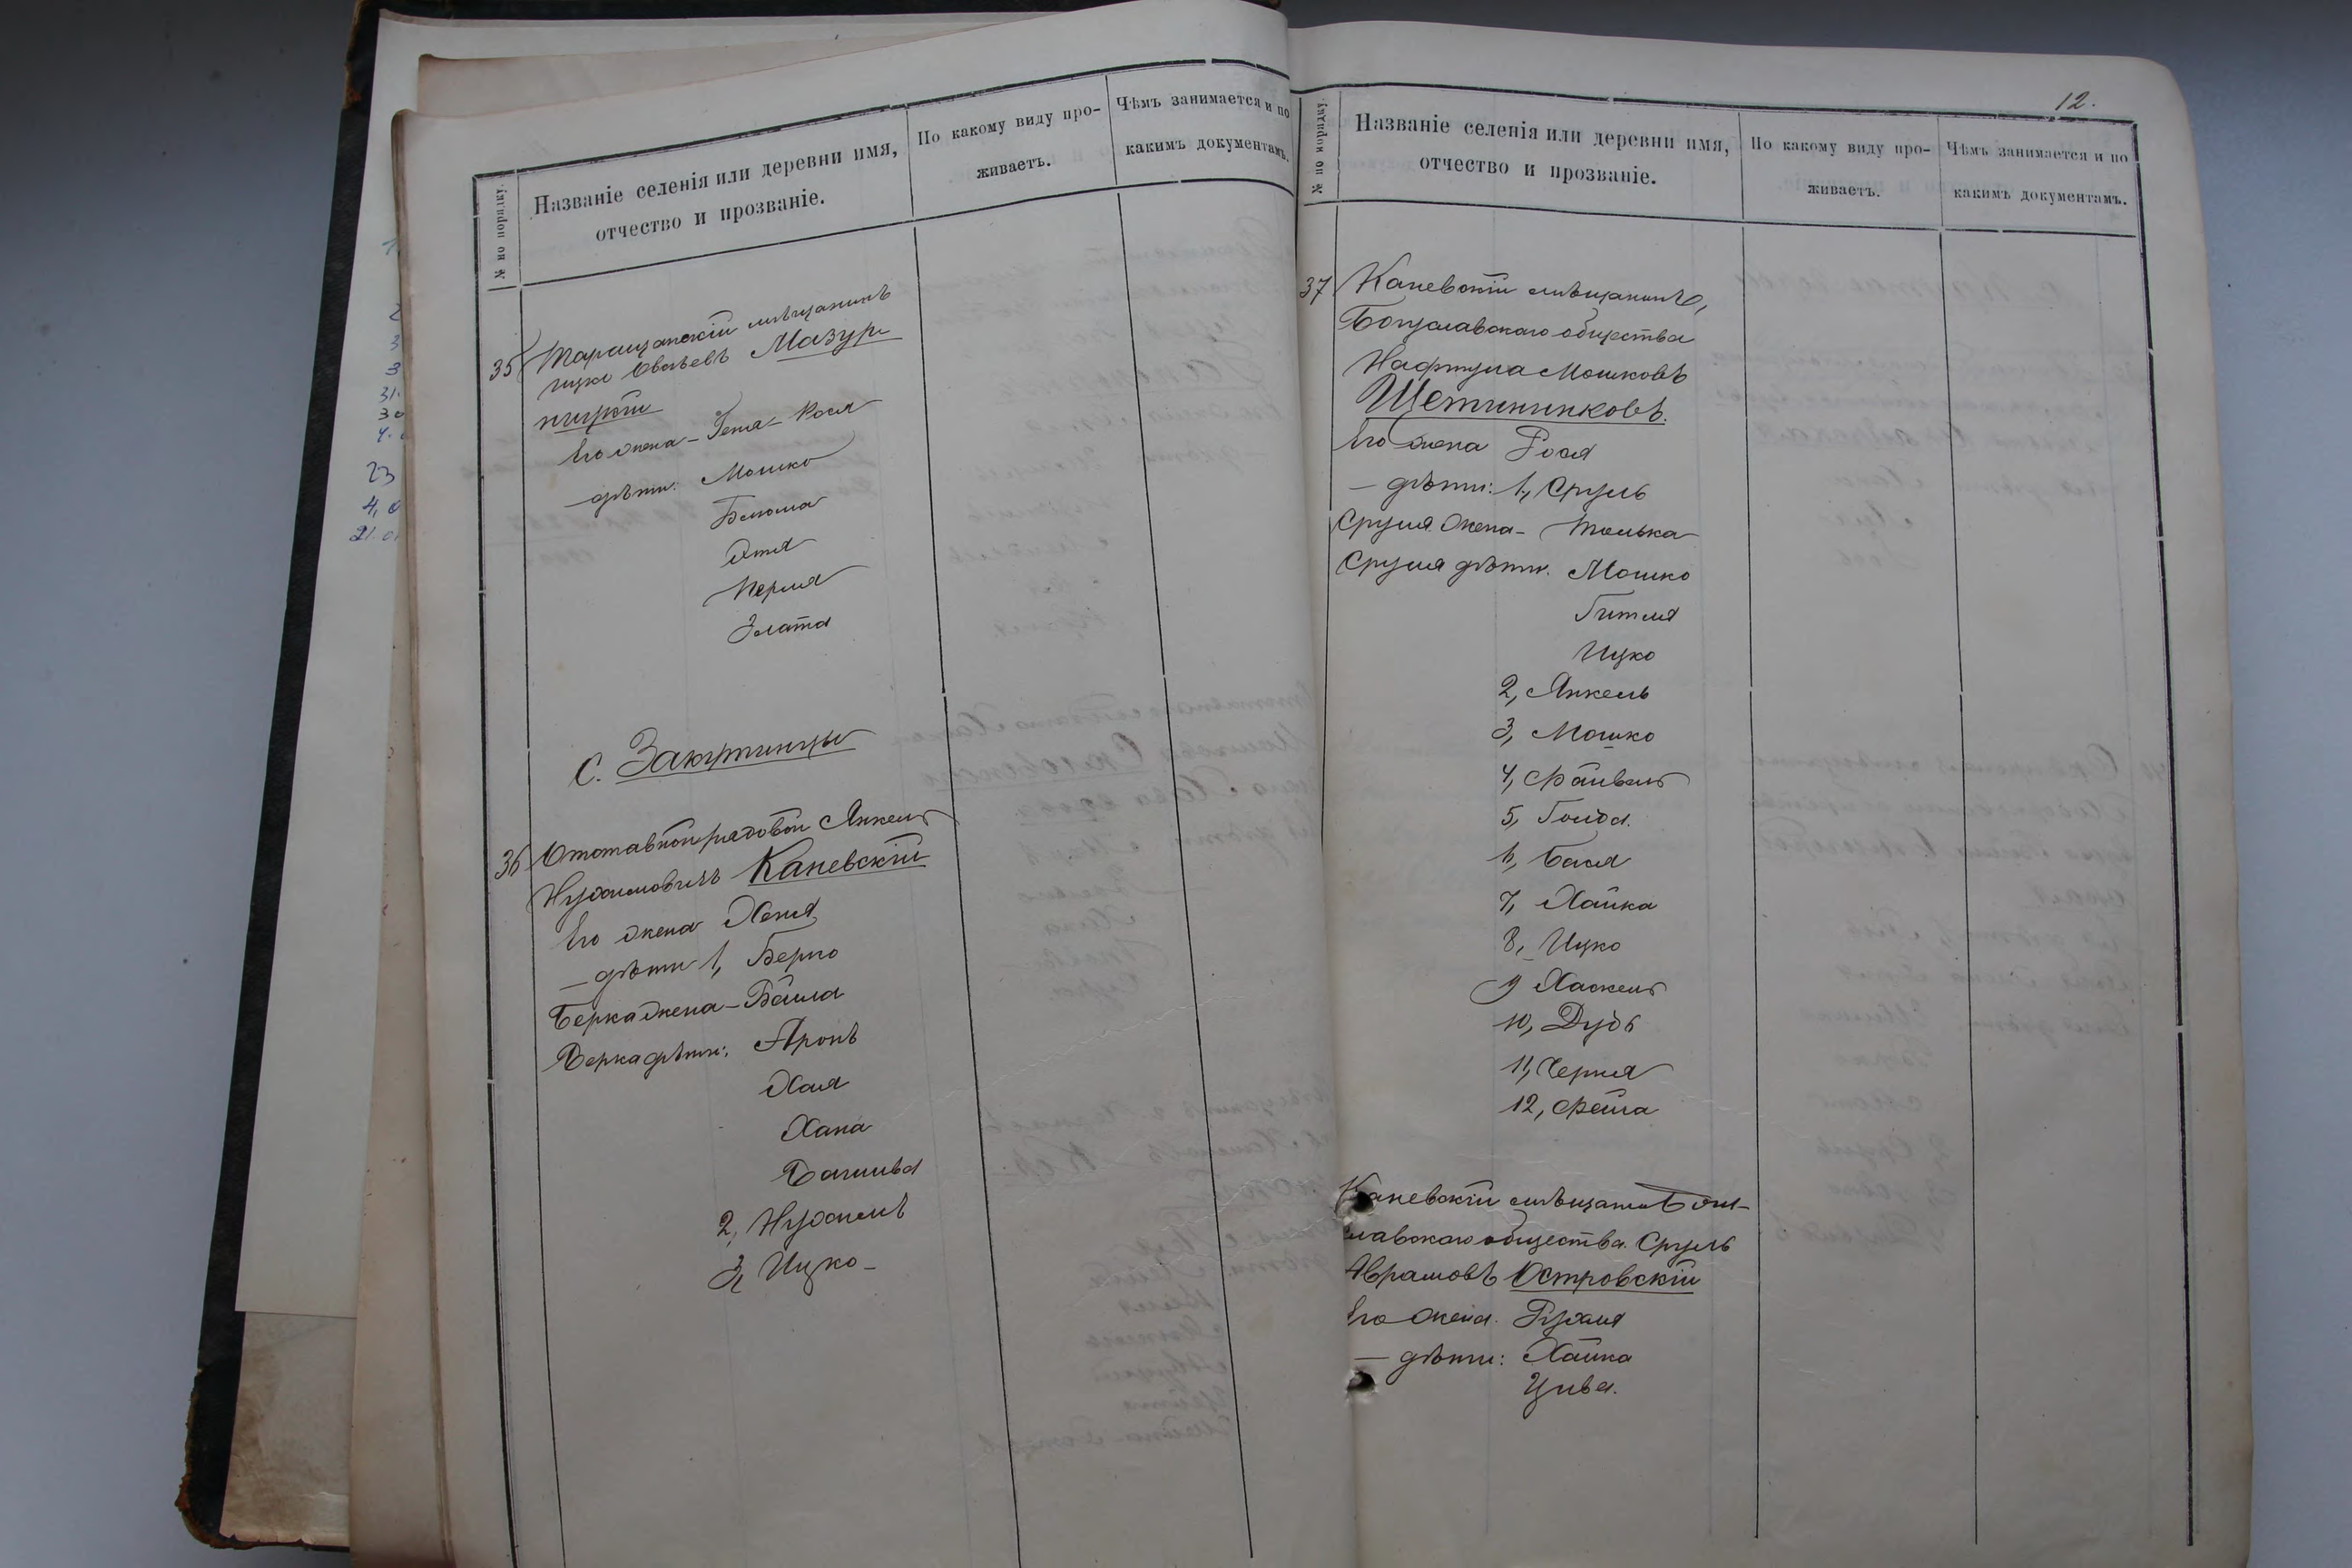 № по порядку.
Названіе селенія или деревни имя,
отчество и прозваніе.
По какому виду про-
живаетъ.
Чѣмъ занимается и по
какимъ документамъ.
35 Таращанскій мѣщанинъ
Ицко Мазур-
Его жена - Рося
- дѣти: Мошко
Бенюма
Этя
Перля
Злата
С. Закутинцы
36 Отставной рядовой Янкель
Нухимовичъ Каневскій
Его жена Хеня
- дѣти 1, Берко
Берка жена - Бейла
Берка дѣти: Аронъ
Хая
Хана
Батшива
2, Нухимъ
3, Ицко -
12.
№ по порядку.
Названіе селенія или деревни имя,
отчество и прозваніе.
По какому виду про-
живаетъ.
Чѣмъ занимается и по
какимъ документамъ.
37 Каневскій мѣщанинъ,
Богуславскаго общества
Нафтула Мошковъ
Щетининковъ.
Его жена Рося
- дѣти: 1, Сруль
Сруля жена - Толька
Сруля дѣти. Мошко
Гитля
Ицко
2, Янкель
3, Мошко
4, Файвель
5, Гольда.
6, Бася
7, Хайка
8, Ицко
9 Хаскель
10, Дудь
11, Черня
12, Фейга
Каневскій мѣщанинъ Богу-
славскаго общества. Сруль
Аврамовъ Островскій
Его жена. Рухля
- дѣти: Хайка
Цива.